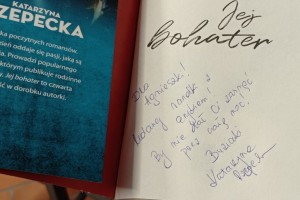 KATARZYNA
RZEPECKA
ka poczytnych romansów.
dzień oddaje się pasji, jaką są
a. Prowadzi popularnego
którym publikuje rodzinne
e. Jej bohater to czwarta
ść w dorobku autorki.
Jej
bohater
Dla Agnieszki!
Udanej randki z
By nie dał Ci zasnąć
przez całą noc!
Buziaki
Katarzyna